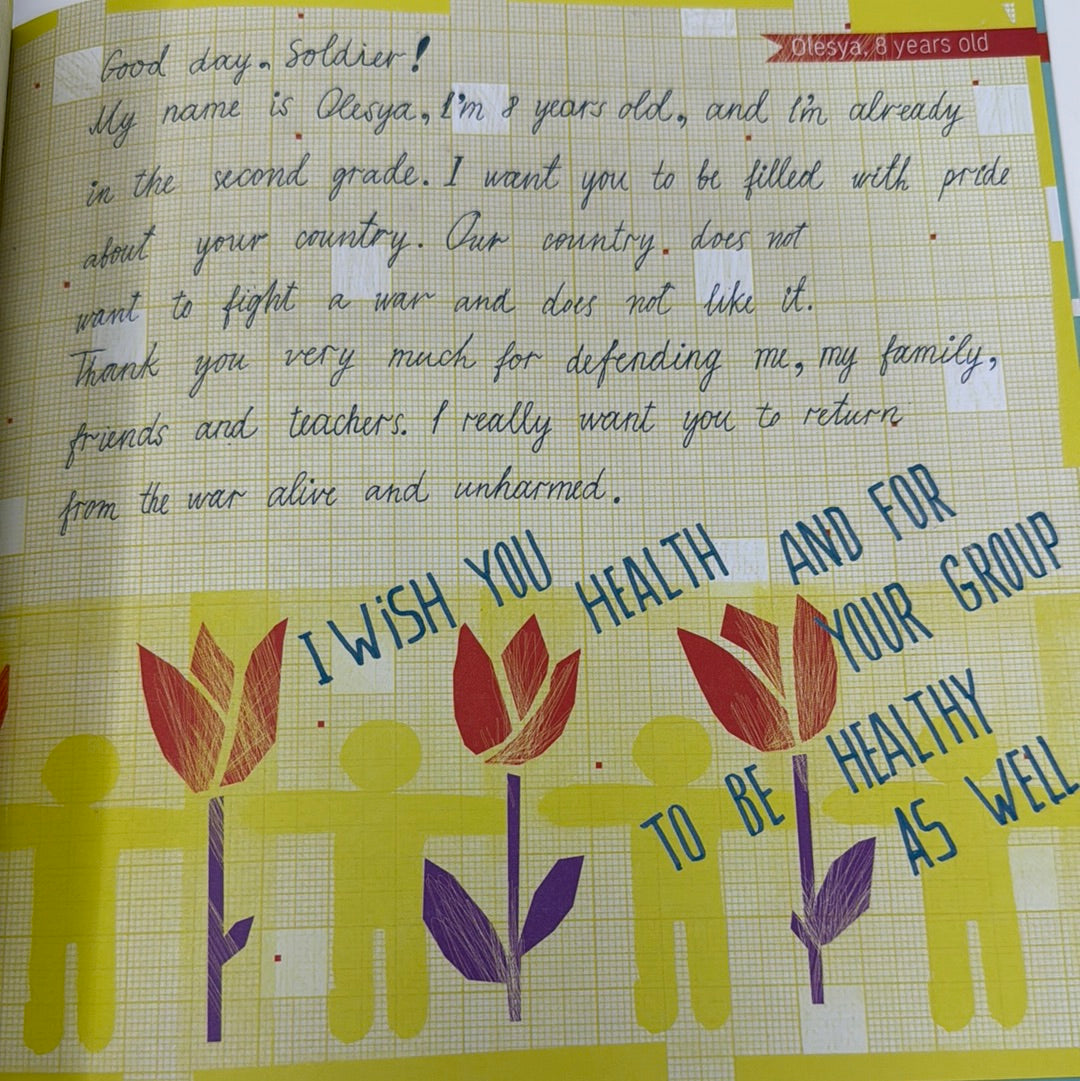 Olesya, 8 years old
Good day, Soldier!
My name is Olesya, I'm 8 years old, and I'm already
in the second grade. I want you to be filled with pride
about your country. Our country does not
want to fight a war and does not like it.
Thank you very much for defending me, my family,
friends and teachers. I really want you to return
from the war alive and unharmed.
I WiSH YOU HEALTH AND FOR
YOUR GROUP
TO BE HEALTHY
AS WELL